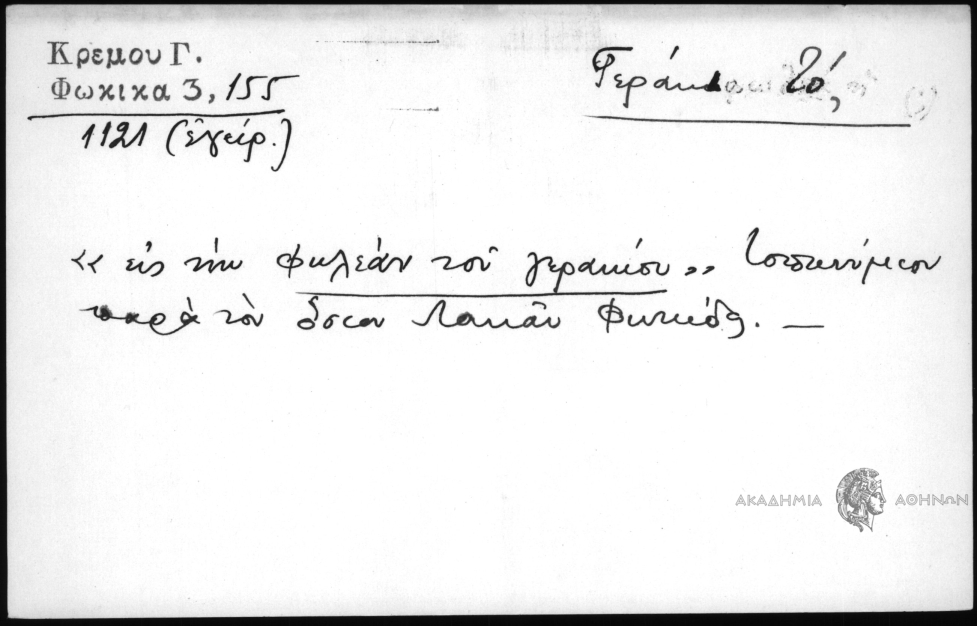 Κρεμου Γ.
Φωκικα 3, 155
1121 (ἐγείρ.)
Γεράκι τό,
« εἰς τὴν φωλεὰν τοῦ γερακίου » τοπωνύμιον
παρὰ τὸν ὅσιον Λουκᾶν Φωκίδος. —
ΑΚΑΔΗΜΙΑ ΑΘΗΝΩΝ